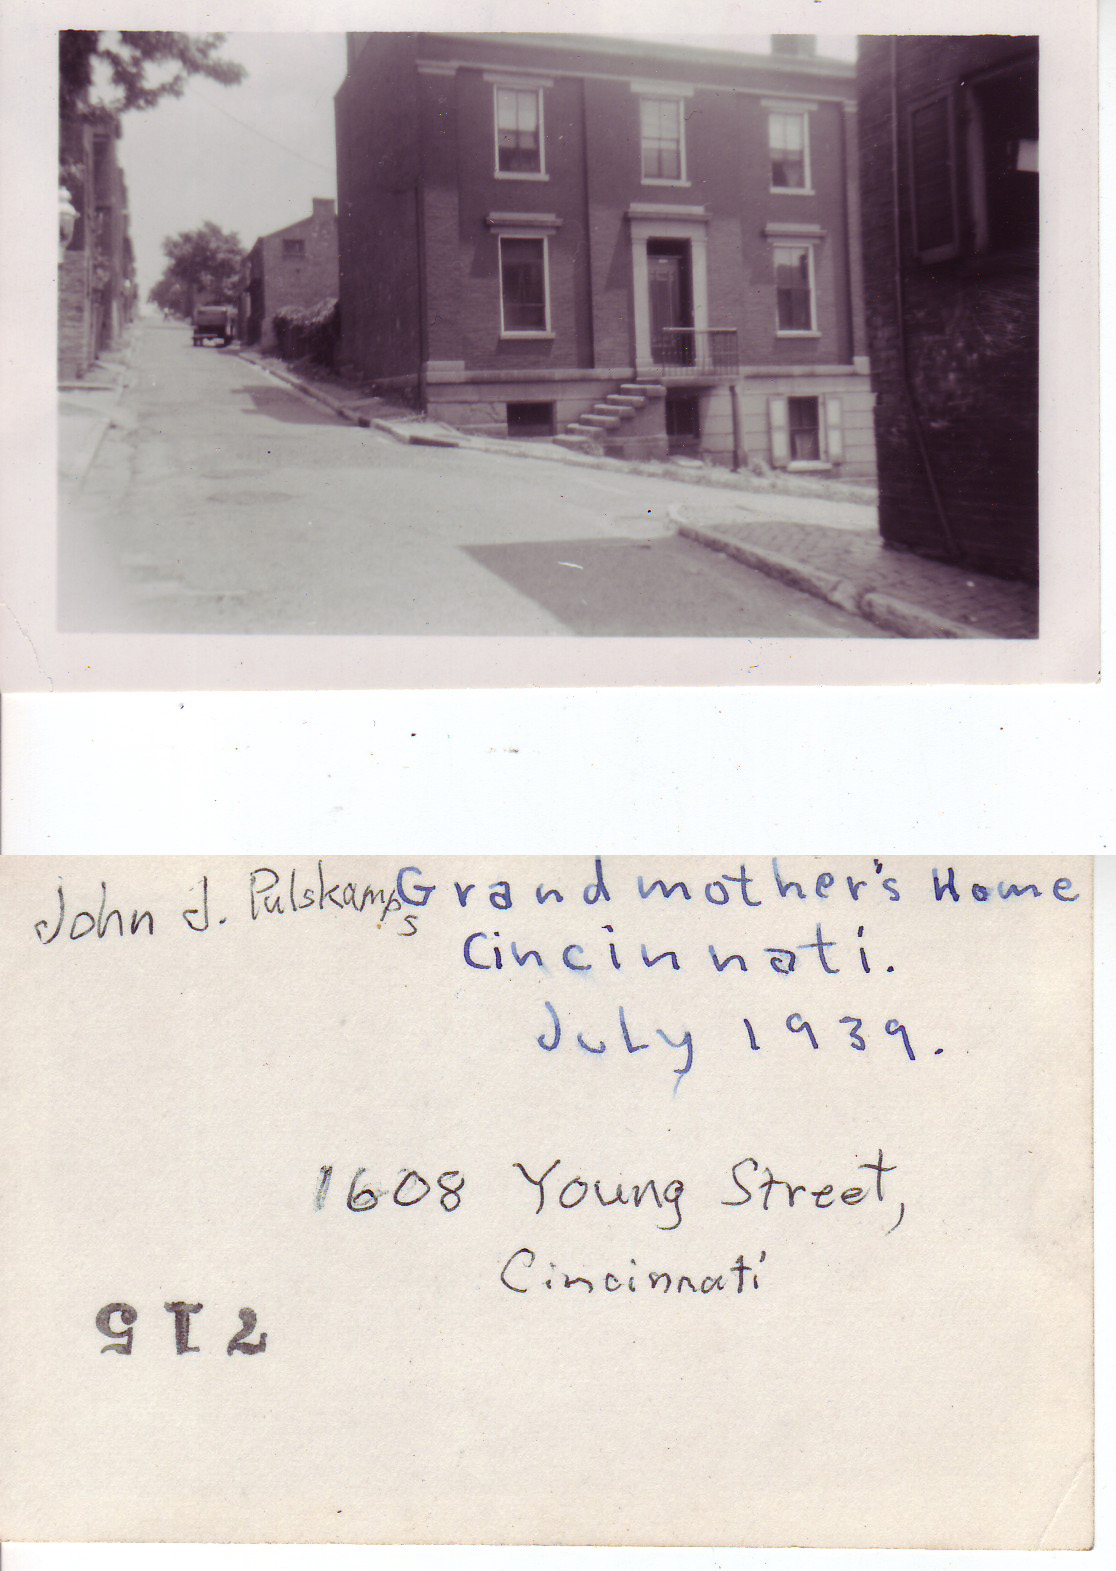 John J. Pulskamp's Grandmother's Home
Cincinnati.
July 1939.
1608 Young Street,
Cincinnati